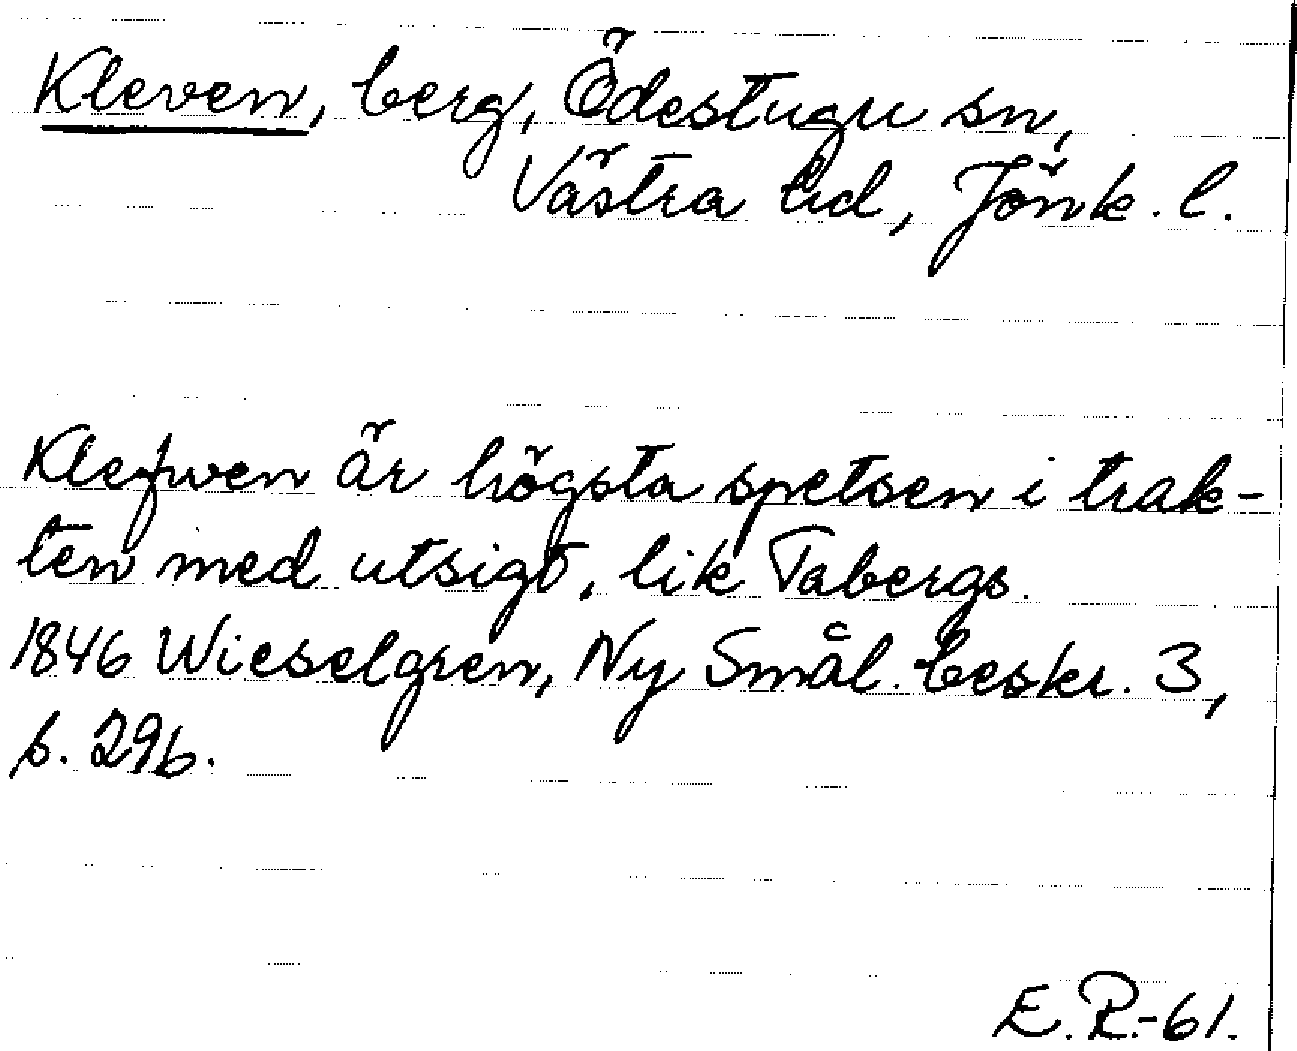 Kleven, berg, Ödestugu sn,
Västra hd, Jönk. l.
Klefwen är högsta spetsen i trak-
ten med utsigt, lik Tabergs.
1846 Wieselgren, Ny Smål. beskr. 3,
s. 296.
E.R.-61.